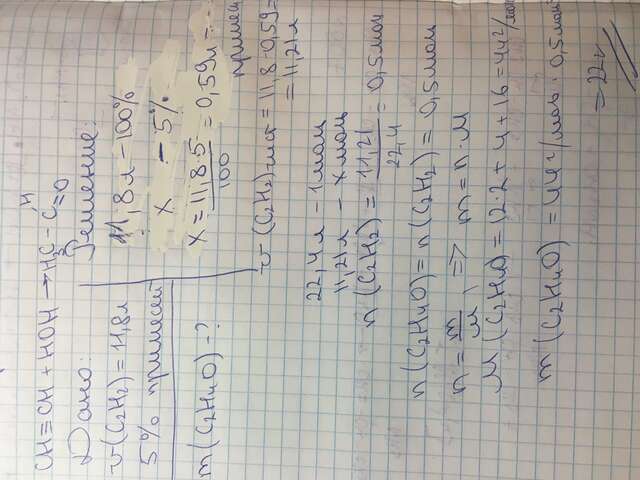 H
CH≡CH + HOH → H₃C - C
=O
Дано:
Решение:
v(C₂H₂) = 11,8л
5% примесей
m(C₂H₄O) - ?
11,8л - 100%
x - 5%
x = 11,8·5 / 100 = 0,59л -
примес
v(C₂H₂)чист = 11,8 - 0,59 =
= 11,21л
22,4л - 1моль
11,21л - x моль
n(C₂H₂) = 11,21 / 22,4 = 0,5моль
n(C₂H₄O) = n(C₂H₂) = 0,5моль
n = m / M, => m = n·M
M(C₂H₄O) = 12·2 + 4 + 16 = 44г/моль
m(C₂H₄O) = 44г/моль · 0,5моль
= 22г